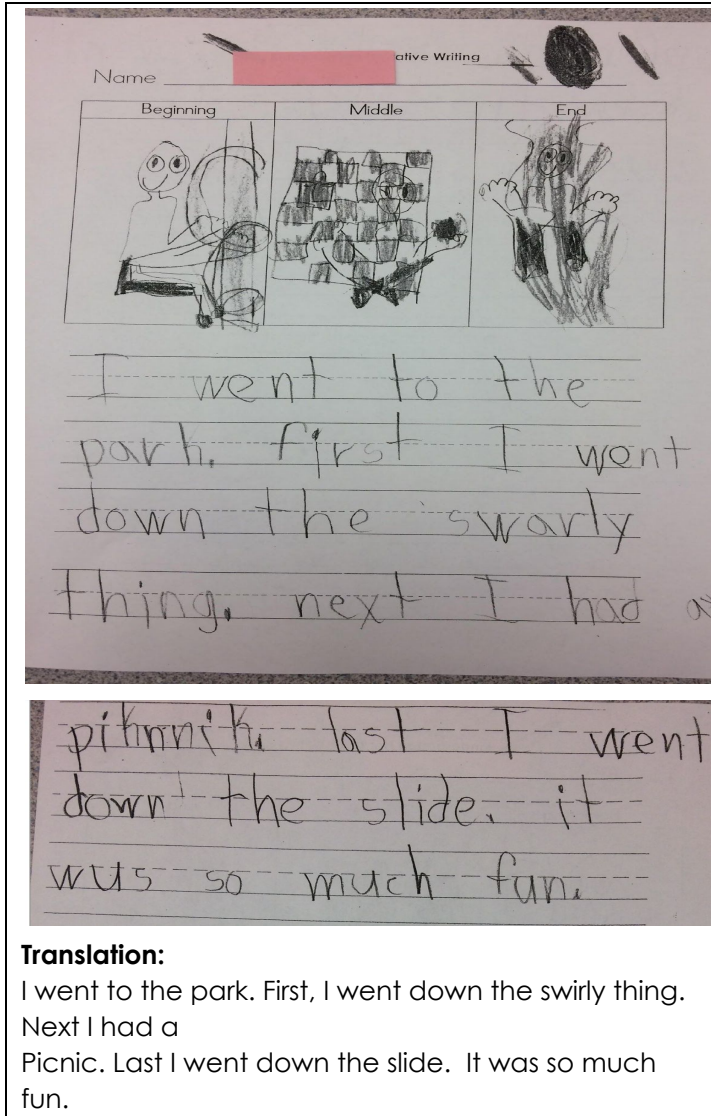 ative Writing
Name
Beginning Middle End
I went to the
park. first I went
down the swarly
thing. next I had a
piknnik. last I went
down the slide. it
wus so much fun.
Translation:
I went to the park. First, I went down the swirly thing.
Next I had a
Picnic. Last I went down the slide.  It was so much
fun.